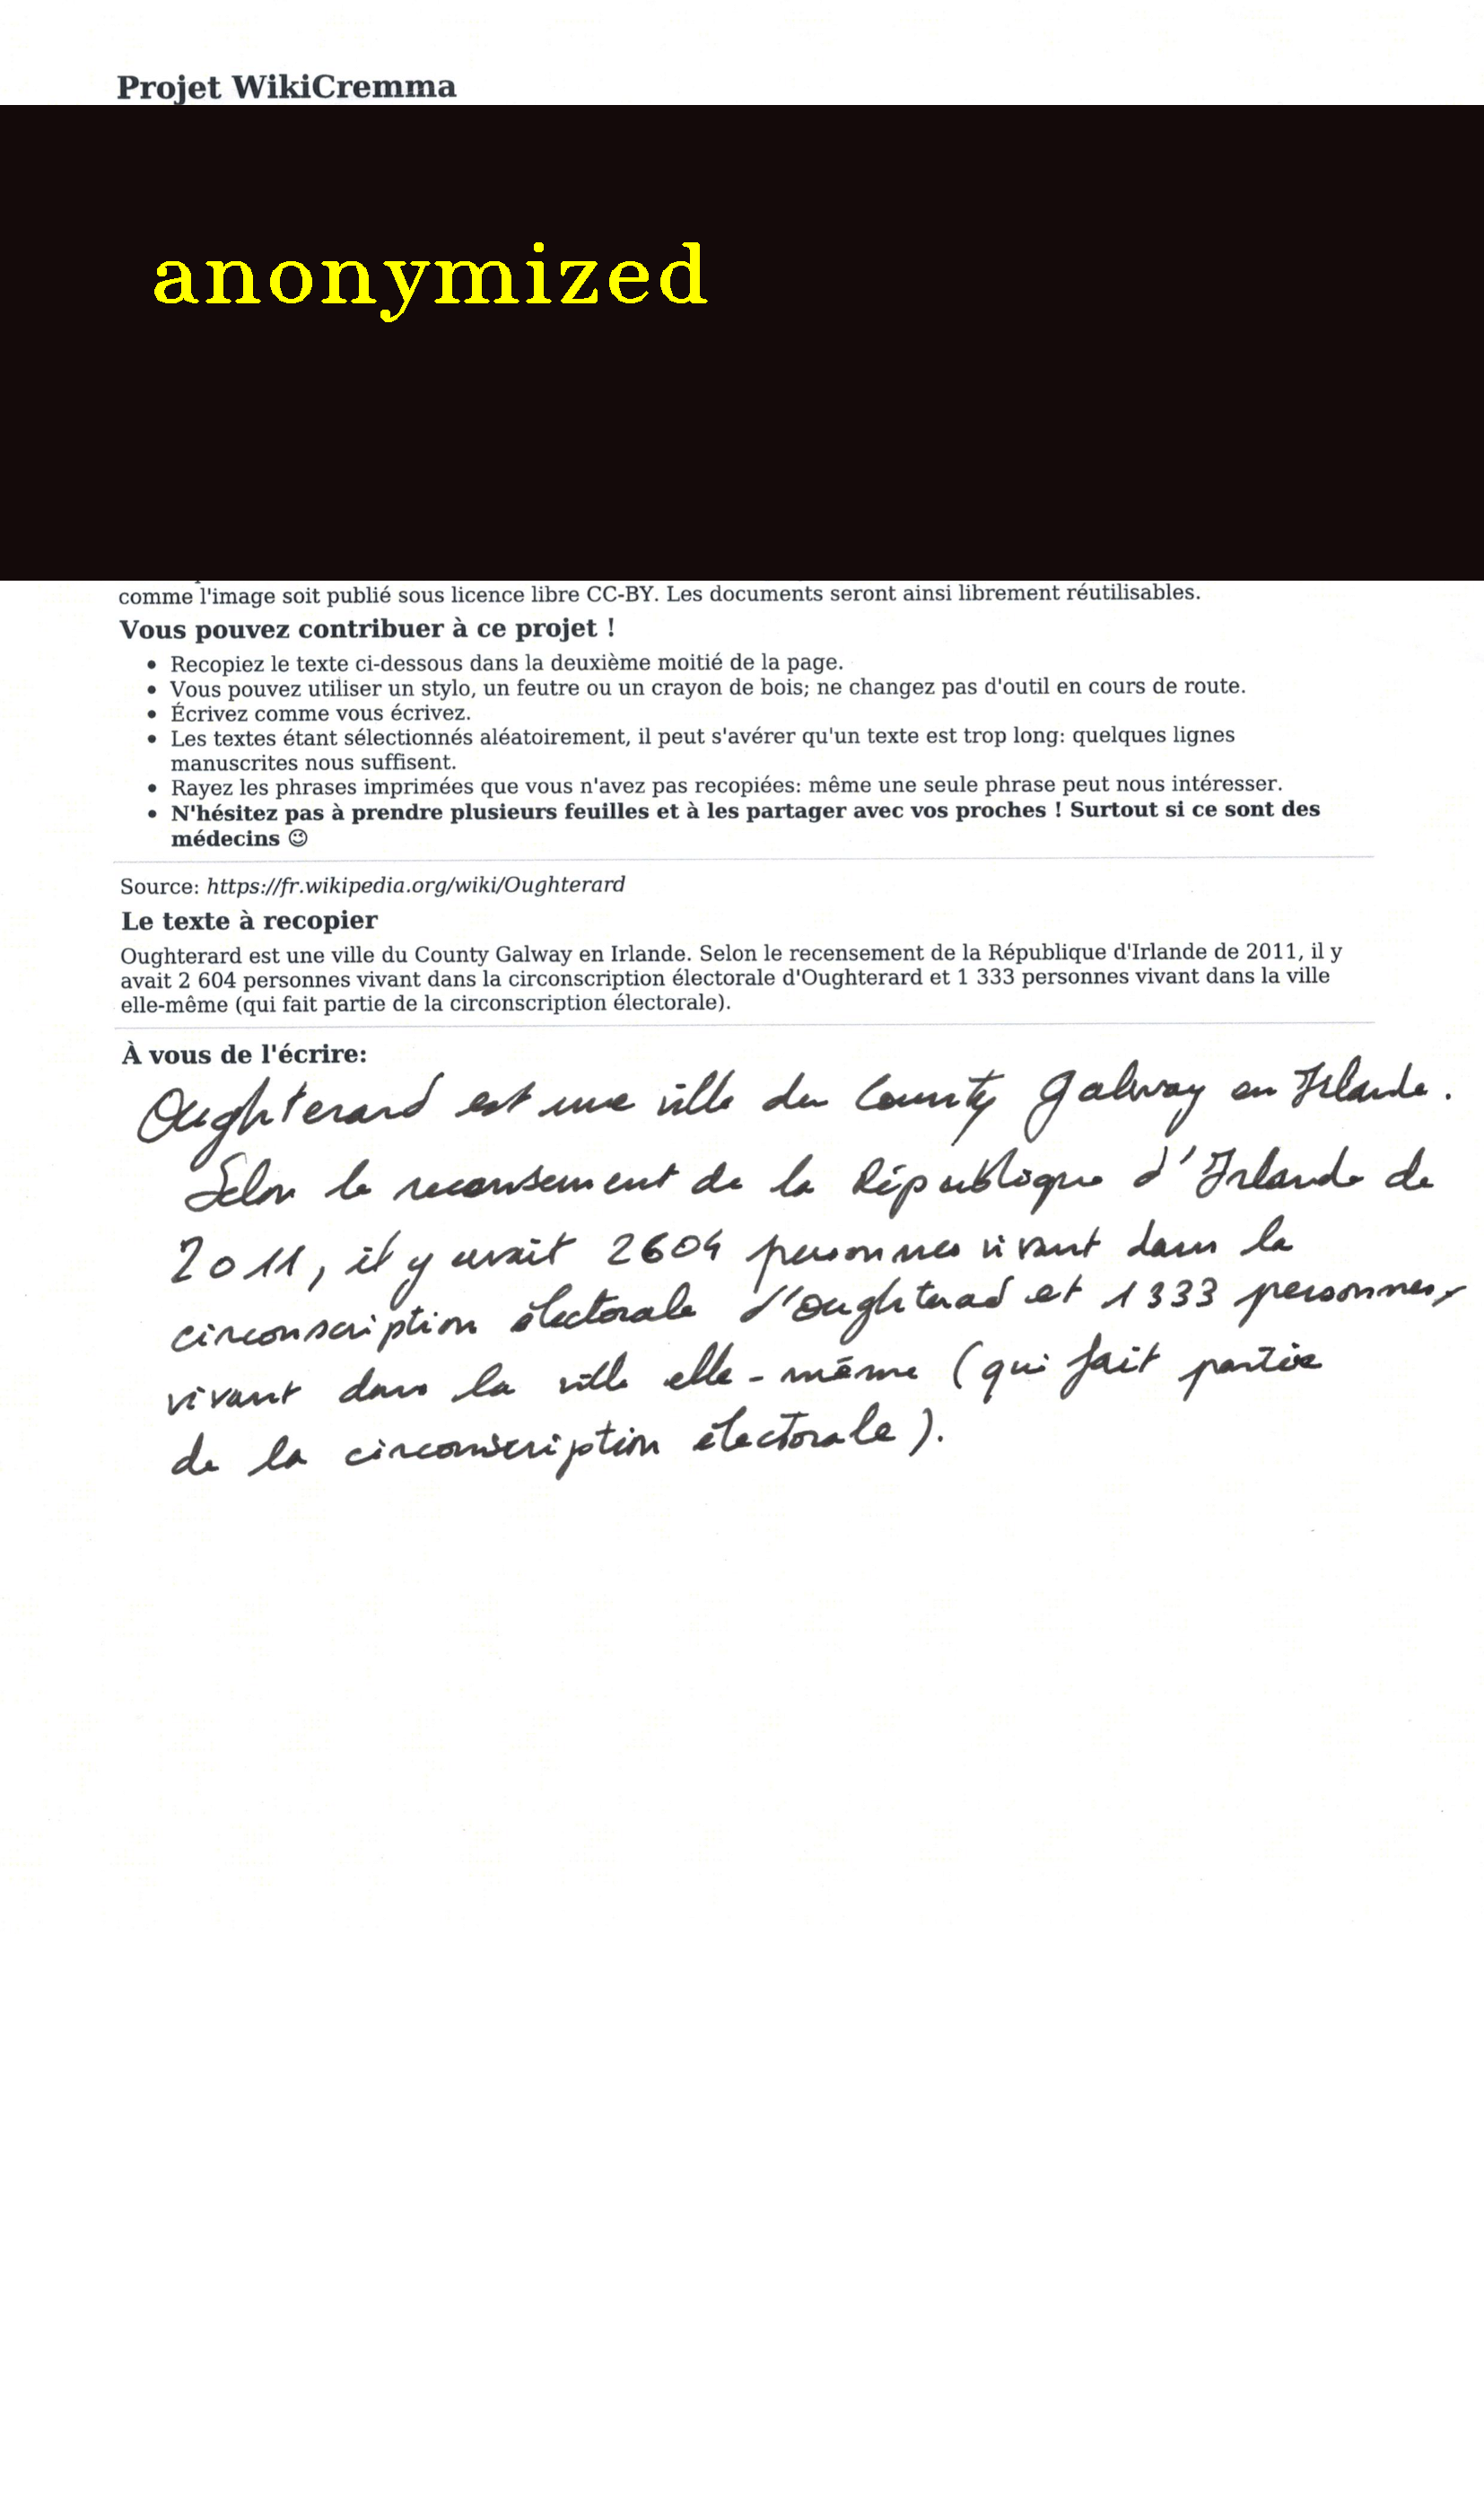 Projet WikiCremma
anonymized
comme l'image soit publié sous licence libre CC-BY. Les documents seront ainsi librement réutilisables.
Vous pouvez contribuer à ce projet !
• Recopiez le texte ci-dessous dans la deuxième moitié de la page.
• Vous pouvez utiliser un stylo, un feutre ou un crayon de bois; ne changez pas d'outil en cours de route.
• Écrivez comme vous écrivez.
• Les textes étant sélectionnés aléatoirement, il peut s'avérer qu'un texte est trop long: quelques lignes
manuscrites nous suffisent.
• Rayez les phrases imprimées que vous n'avez pas recopiées: même une seule phrase peut nous intéresser.
• N'hésitez pas à prendre plusieurs feuilles et à les partager avec vos proches ! Surtout si ce sont des
médecins 😉
Source: https://fr.wikipedia.org/wiki/Oughterard
Le texte à recopier
Oughterard est une ville du County Galway en Irlande. Selon le recensement de la République d'Irlande de 2011, il y
avait 2 604 personnes vivant dans la circonscription électorale d'Oughterard et 1 333 personnes vivant dans la ville
elle-même (qui fait partie de la circonscription électorale).
À vous de l'écrire:
Oughterard est une ville du County Galway en Irlande.
Selon le recensement de la République d'Irlande de
2011, il y avait 2604 personnes vivant dans la
circonscription électorale d'Oughterad et 1333 personnes,
vivant dans la ville elle-même (qui fait partie
de la circonscription électorale).